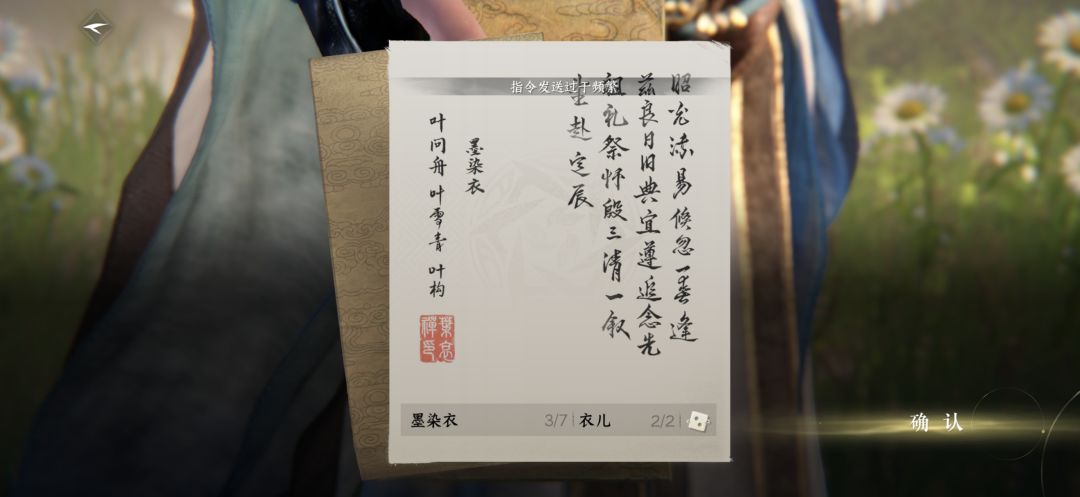 指令发送过于频繁
昭光易倏忽一春逢
兹良日旧典宜遵追念先
祖礼祭怀殷三清一叙
赴定辰
墨染衣
叶问舟 叶雪青 叶构
葉哀禪印
墨染衣 3/7 衣儿 2/2
确认